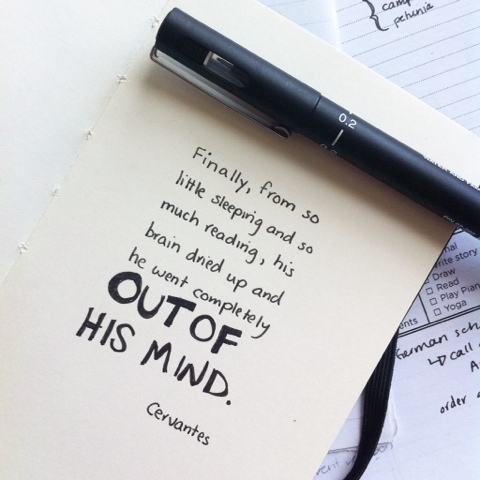 Finally, from so
little sleeping and so
much reading, his
brain dried up and
he went completely
OUT OF
HIS MIND.
Cervantes
0.2
petunia
Write story
Draw
Read
Play Pian
Yoga
German sch
call
order